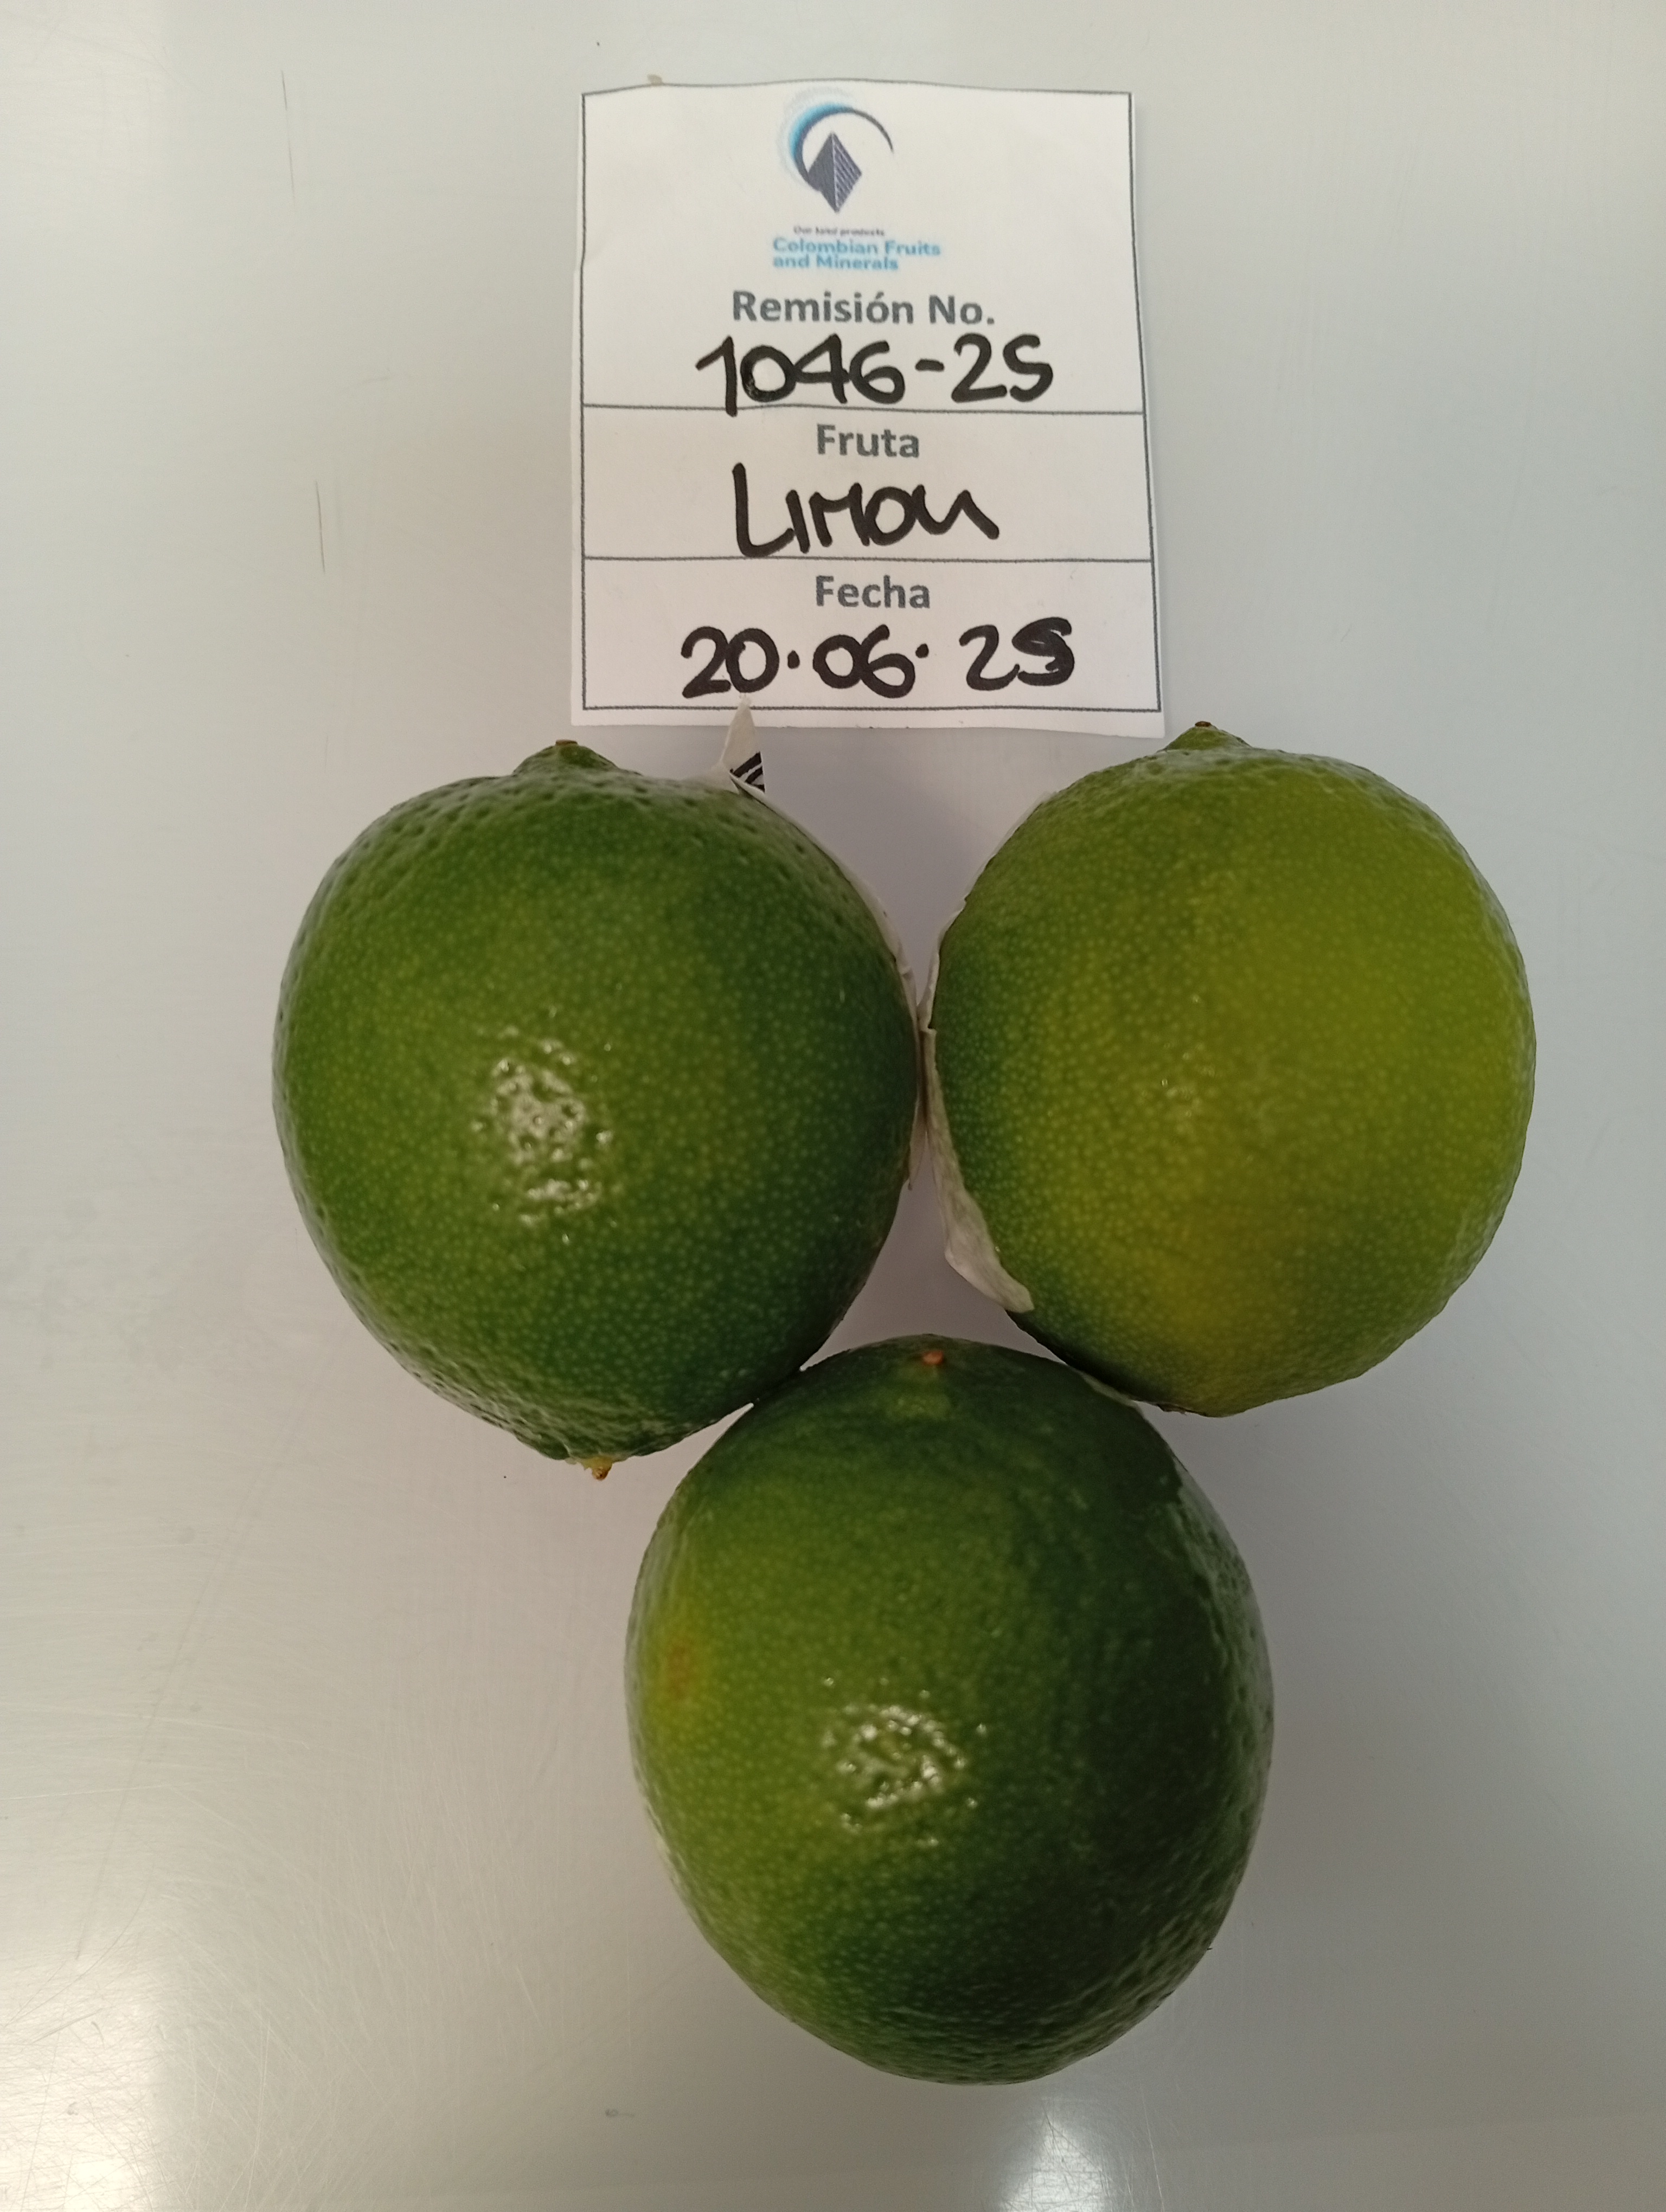 Our kind products
Colombian Fruits
and Minerals
Remisión No.
1046-25
Fruta
LIMON
Fecha
20·06·25